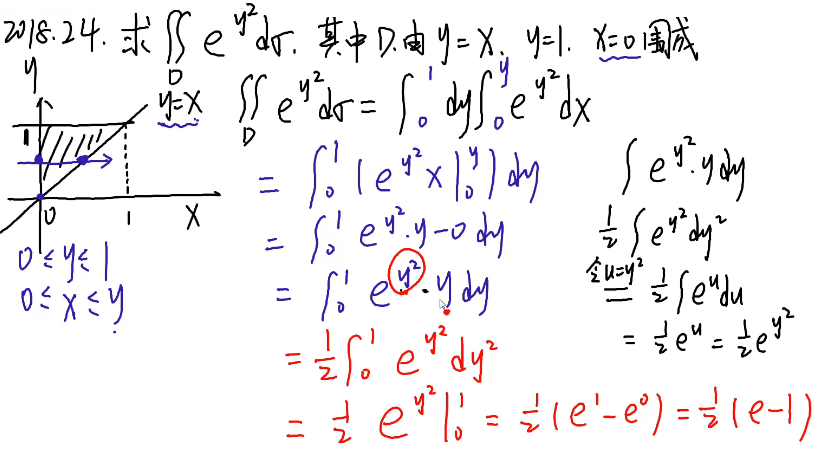 2018.24. 求 ∬_D e^{y²}dσ. 其中D.由 y=x. y=1. x=0围成
y
y=x
1
0
1
x
0≤y≤1
0≤x≤y
∬_D e^{y²}dσ = ∫_0^1 dy∫_0^y e^{y²}dx
= ∫_0^1 (e^{y²}x|_0^y)dy
= ∫_0^1 e^{y²}·y-0 dy
= ∫_0^1 e^{y²}·y dy
= 1/2∫_0^1 e^{y²}dy²
= 1/2 e^{y²}|_0^1 = 1/2(e^1-e^0) = 1/2(e-1)
∫e^{y²}·ydy
1/2∫e^{y²}dy²
令u=y² = 1/2∫e^u du
= 1/2e^u = 1/2e^{y²}